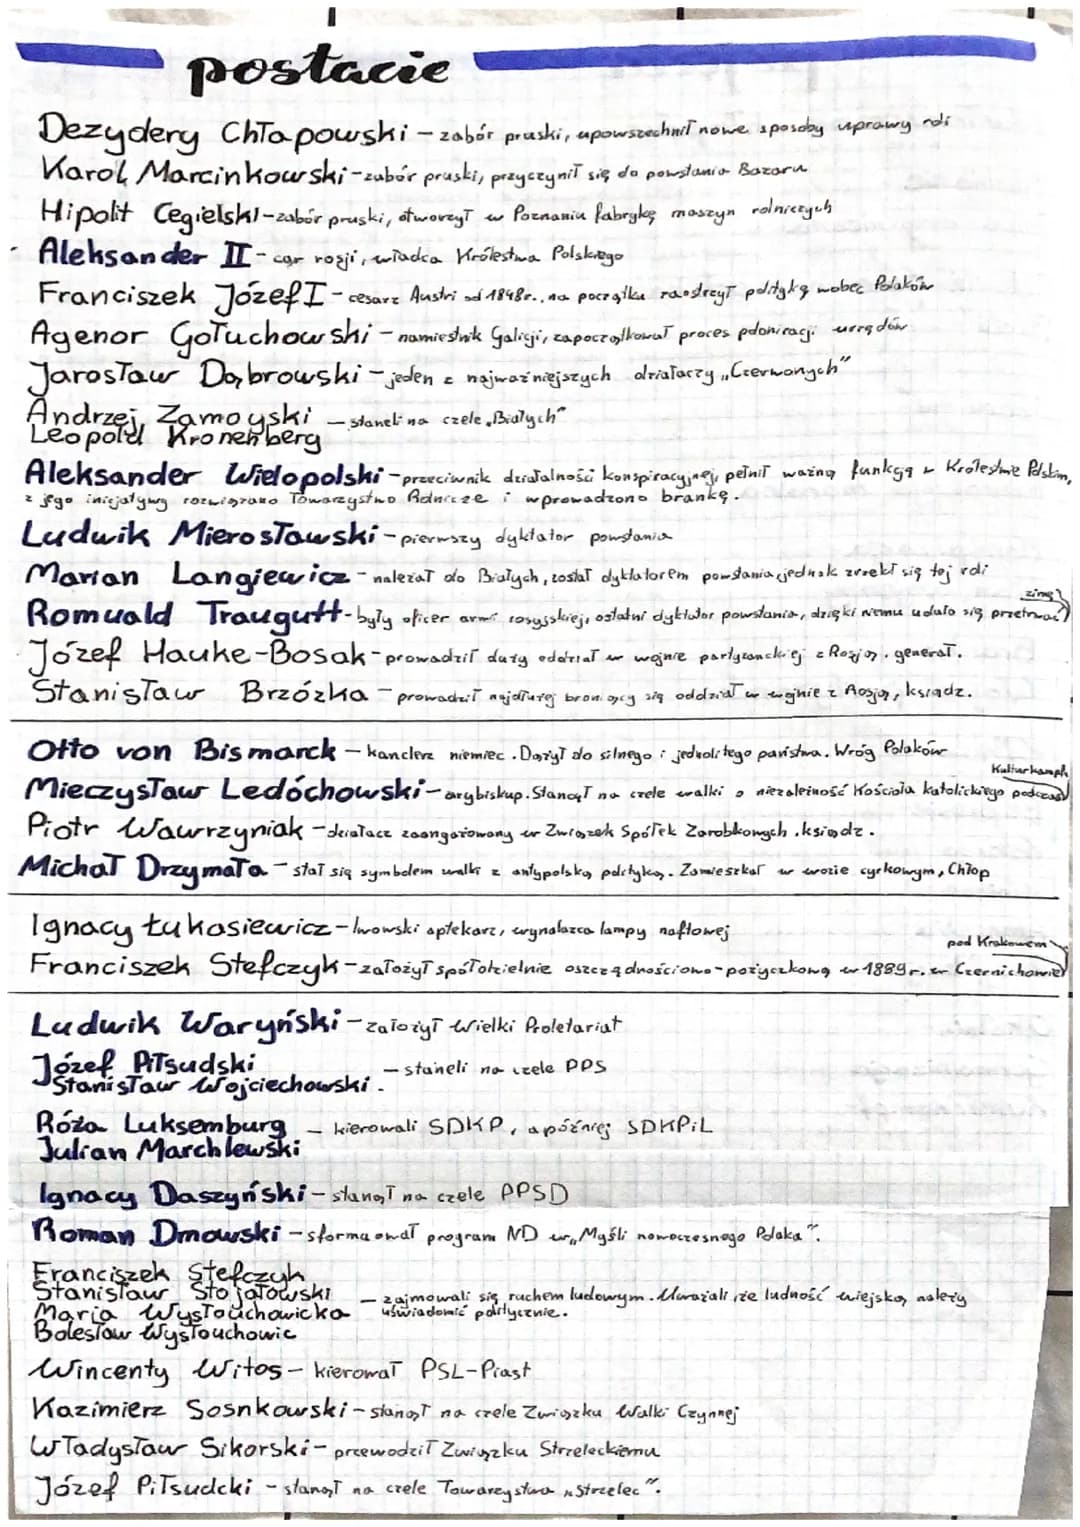 postacie
Dezydery Chłapowski – zabór pruski, upowszechnił nowe sposoby uprawy roli
Karol Marcinkowski – zabór pruski, przyczynił się do powstania Bazaru
Hipolit Cegielski – zabór pruski, otworzył w Poznaniu fabrykę maszyn rolniczych
Aleksander II – car rosji, władca Królestwa Polskiego
Franciszek Józef I – cesarz Austri od 1848r., na początku zaostrzył politykę wobec Polaków
Agenor Gołuchowski – namiestnik Galicji, zapoczątkował proces polonizacji urzędów
Jarosław Dąbrowski – jeden z najważniejszych działaczy „Czerwonych"
Andrzej Zamoyski
Leopold Kronenberg – staneli na czele „Białych"
Aleksander Wielopolski – przeciwnik działalności konspiracyjnej, pełnił ważną funkcję w Królestwie Polskim,
z jego inicjatywy rozwiązano Towarzystwo Rolnicze i wprowadzono brankę.
Ludwik Mierosławski – pierwszy dyktator powstania
Marian Langiewicz – należał do Białych, został dyktatorem powstania jednak zrzekł się tej roli
Romuald Traugutt – były oficer armi rosyjskiej, ostatni dyktator powstania, dzięki niemu udało się przetrwać zimę
Józef Hauke-Bosak – prowadził duży oddział w wojnie partyzanckiej z Rosją. generał.
Stanisław Brzózka – prowadził najdłużej broniący się oddział w wojnie z Rosją, ksiądz.
Otto von Bismarck – kanclerz niemiec. Dążył do silnego i jednolitego państwa. Wróg Polaków
Mieczysław Ledóchowski – arybiskup. Stanął na czele walki o niezależność Kościoła katolickiego podczas Kulturkamph
Piotr Wawrzyniak – działacz zaangażowany w Związek Spółek Zarobkowych. ksiądz.
Michał Drzymała – stał się symbolem walki z antypolską polityką. Zamieszkał w wozie cyrkowym, Chłop
Ignacy Łukasiewicz – lwowski aptekarz, wynalazca lampy naftowej
Franciszek Stefczyk – założył spółdzielnie oszczędnościowo-pożyczkową w 1889r. w Czernichowie pod Krakowem
Ludwik Waryński – założył Wielki Proletariat
Józef Piłsudski
Stanisław Wojciechowski. – staneli na czele PPS
Róża Luksemburg – kierowali SDKP, a później SDKPiL
Julian Marchlewski
Ignacy Daszyński – stanął na czele PPSD
Roman Dmowski – sformuował program ND w „Myśli nowoczesnego Polaka".
Franciszek Stefczyk
Stanisław Stojałowski – zajmowali się ruchem ludowym. Uważali, że ludność wiejską należy
Maria Wysłouchowicka uświadomić politycznie.
Bolesław Wysłouchowic
Wincenty Witos – kierował PSL-Piast
Kazimierz Sosnkowski – stanął na czele Związku Walki Czynnej
Władysław Sikorski – przewodził Związku Strzeleckiemu
Józef Piłsudcki – stanął na czele Towarzystwa „Strzelec".